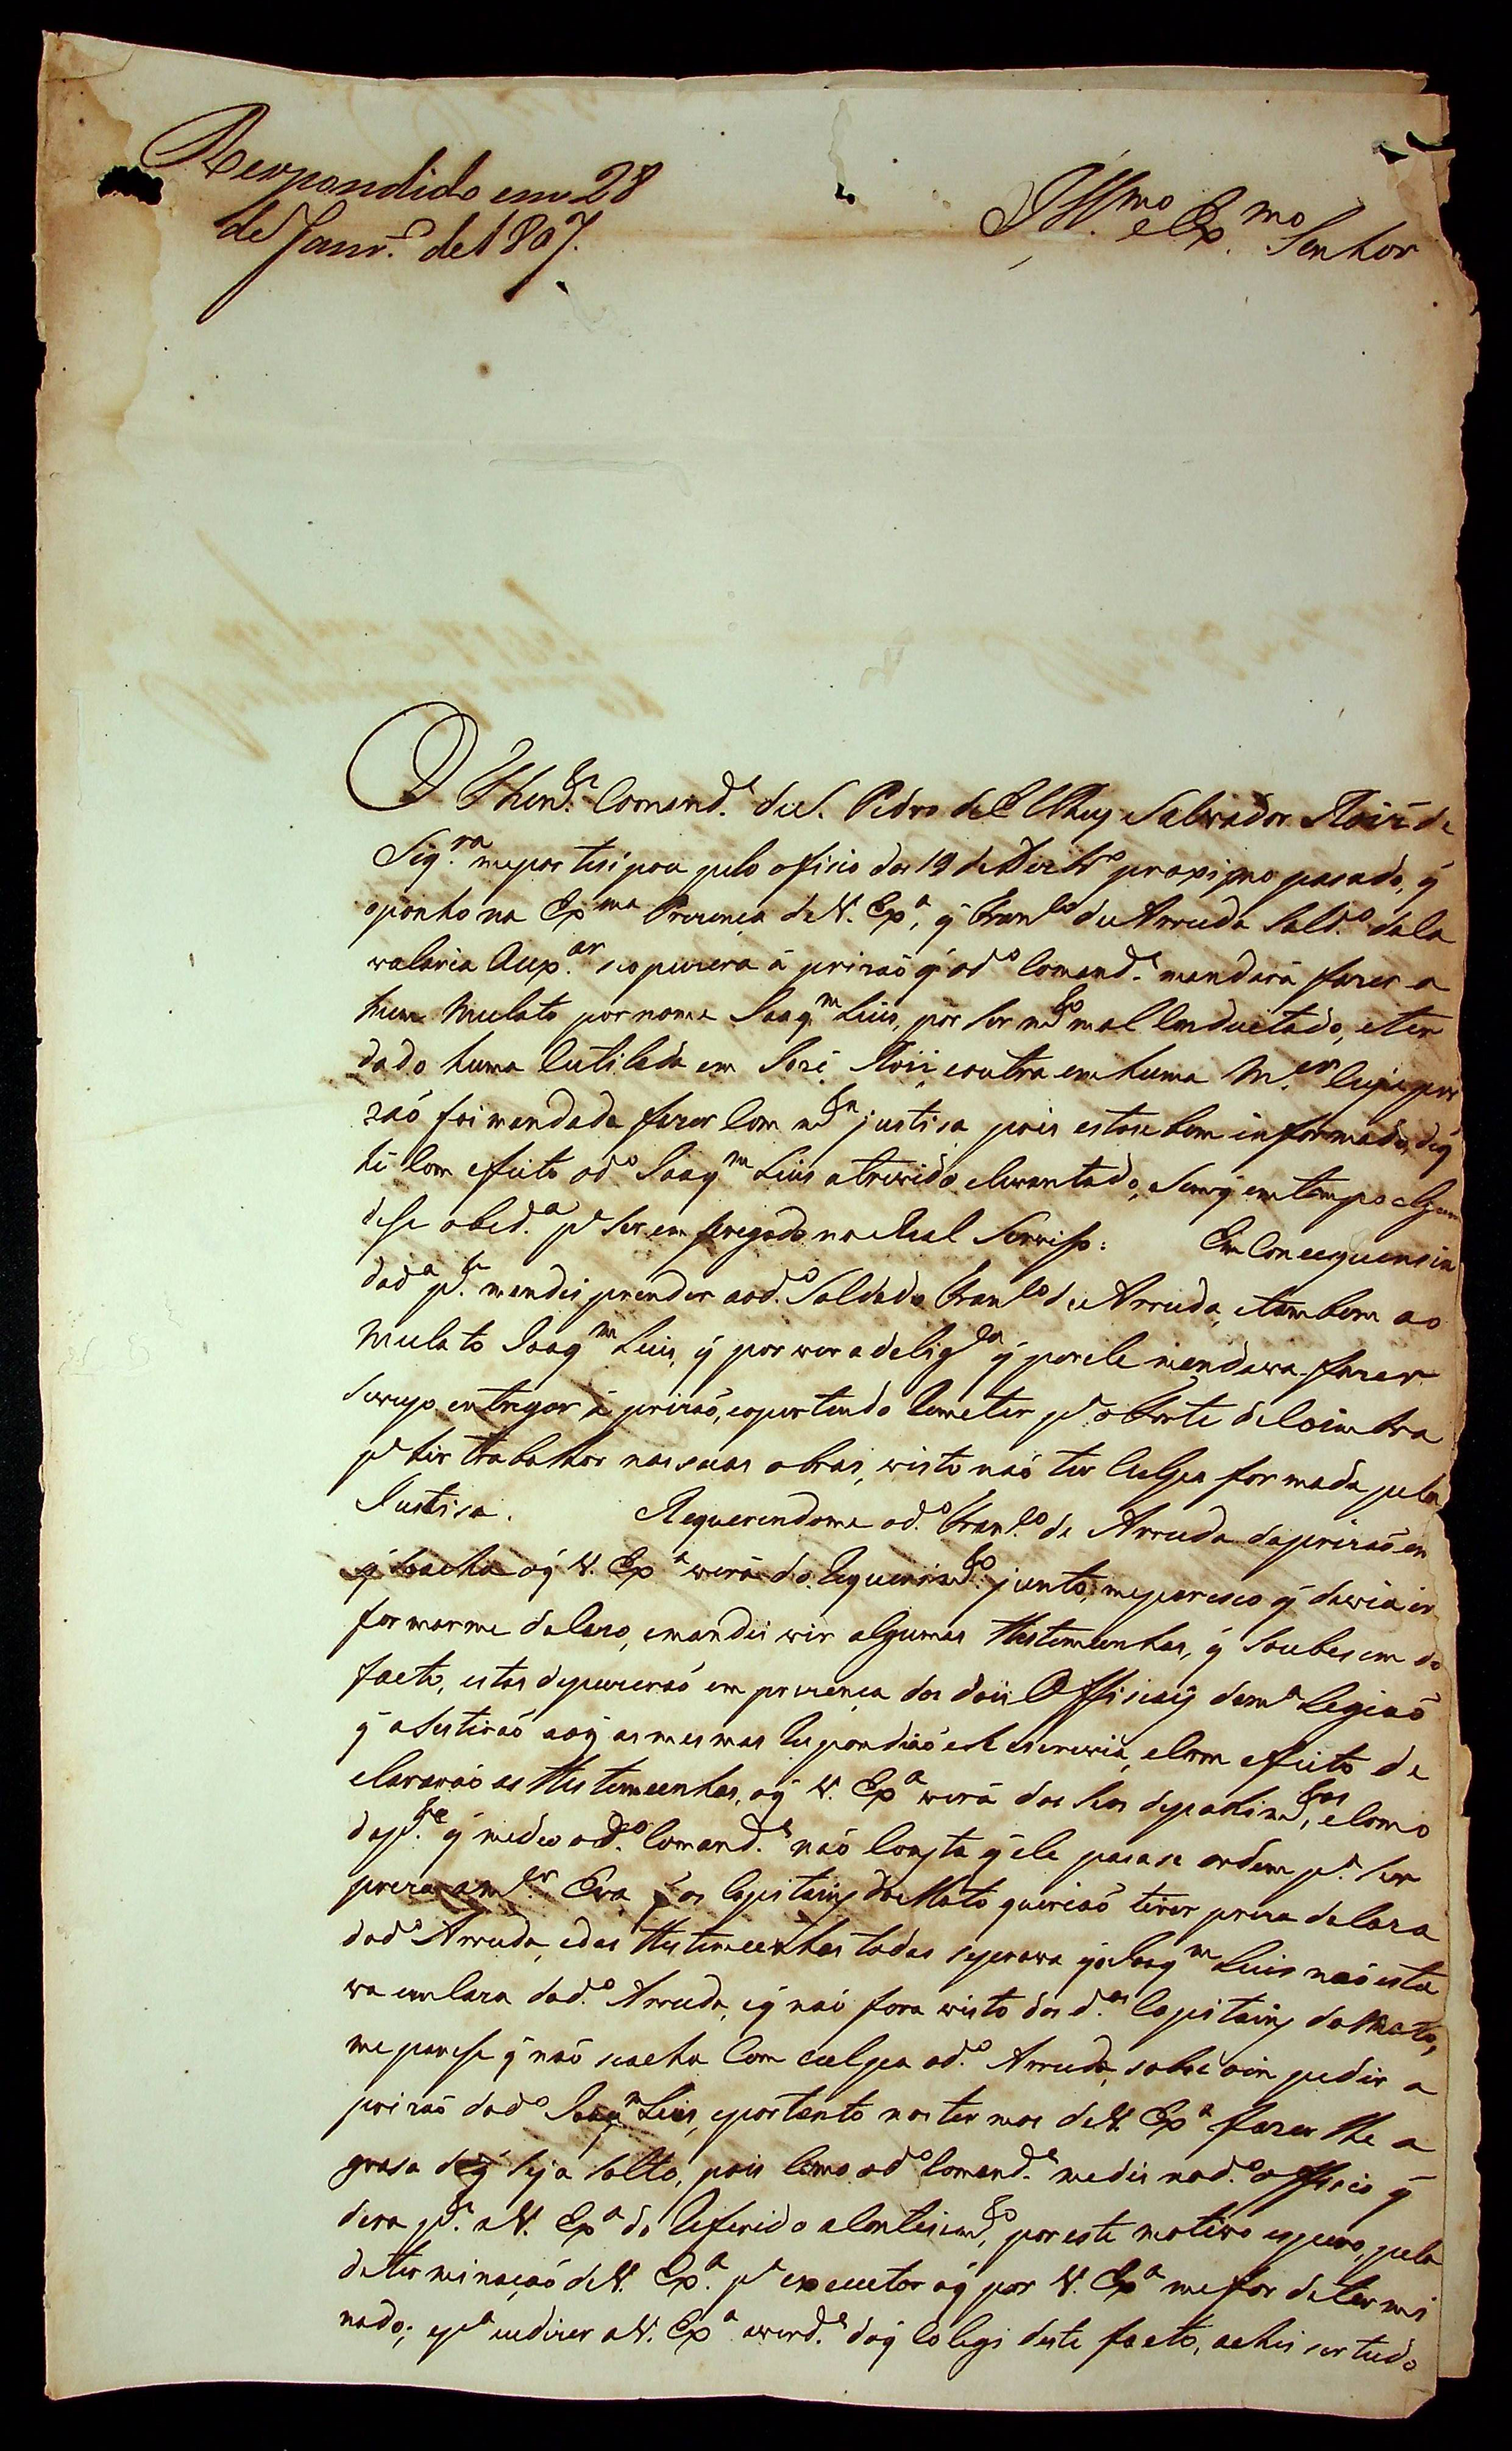 Respondido em 28
de Janr.º de 1807.
Ill.mo e Ex.mo Senhor
O Then.te Comand.e de S. Pedro de El Rey Salvador Roiz de
Siq.ra me partisipou pelo oficio dos 19 de Dezbrº proximo pasado, q̃
o ponho na Ex.ma Prezença de V. Ex.a, q̃ Fran.co de Arruda Sold.º da Ca
valaria Aux.ar se opuzera á prizaõ q̃ o d.º Comand.e mandára fazer a
hum Mulato por nome Joaq.m Luis, por ser m.to mal Conductado, e ter
dado huma Cutilada em Jozé Roiz, e outra em huma M.er cuja pri
zaõ foi mandada fazer Com m.ta justisa pois estose bem informado, de q̃
hé Com efeito o d.º Joaq.m Luis atrevido elevantado, Sem q̃ em tempo algum
dese obed.a p.a ser empregado no Real Servisso: Em Consequensia
da d.a p.te mandei prender ao d.º Soldado Fran.co de Arruda, e tambem ao
Mulato Joaq.m Luis, q̃ por ver a delig.ca q̃ por ele mandava fazer
seveyo entregar á prizaõ, e o pertendo Remeter p.a o Forte de Coimbra
p.a hir trabalhar nas suas obras, visto naõ ter Culpa formada pela
Justisa. Requerendome o d.º Fran.co de Arruda da prizaõ em
q̃ seacha o q̃ V. Ex.a verá do Requerim.to junto, me pareseo q̃ devia in
formarme do Cazo, e mandei vir algumas Thestemunhas, q̃ Soubesem do
facto, estas depuzeraõ em prezença dos dois Officiais da m.a Legiaõ
q̃ asestiraõ ao q̃ as mesmas Respondiaõ e se escrevia, e Com efeito de
claravaõ as Thestemunhas, o q̃ V. Ex.a verá dos seos depohim.tos, e Como
da p.te q̃ me deo o d.º Comand.e naõ Consta q̃ ele pasase ordem p.a ser
preza a m.er Eva q̃ os Capitains do Mato queriaõ tirar preza da Caza
do d.º Arruda, e das Thestemunhas todas separava q̃ o Joaq.m Luis naõ esta
va em Caza do d.º Arruda, e q̃ naõ fora visto dos d.os Capitains do Mato,
me parese q̃ naõ seacha Com culpa o d.º Arruda, sobre oim pedir a
prizaõ do d.º Joaq.m Luis, e portanto nos termos de V. Ex.a fazer lhe a
grasa de q̃ seja solto, pois Como o d.º Comand.e me dis no d.º officio q̃
dera p.te a V. Ex.a do Referido aContesim.to, por este motivo espero, pela
determinaçaõ de V. Ex.a p.a executar o q̃ por V. Ex.a me for determi
nado; e p.a eu dizer a V. Ex.a averd.e do q̃ Colegi deste facto, achei ser tudo